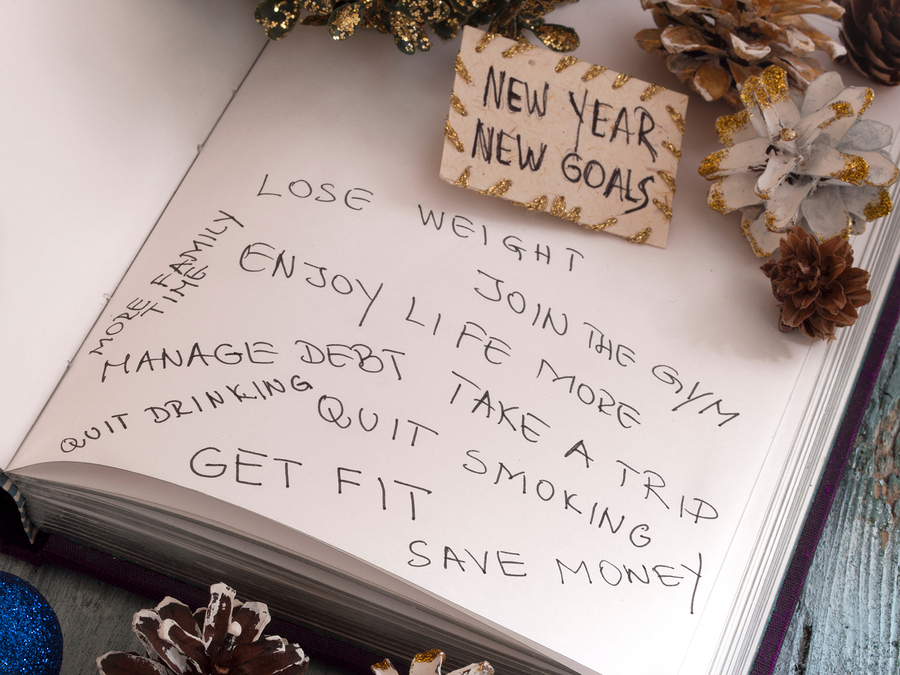 NEW YEAR
NEW GOALS
LOSE WEIGHT
JOIN THE GYM
MORE FAMILY
TIME
ENJOY LIFE MORE
MANAGE DEBT
TAKE A TRIP
QUIT DRINKING
QUIT SMOKING
GET FIT
SAVE MONEY